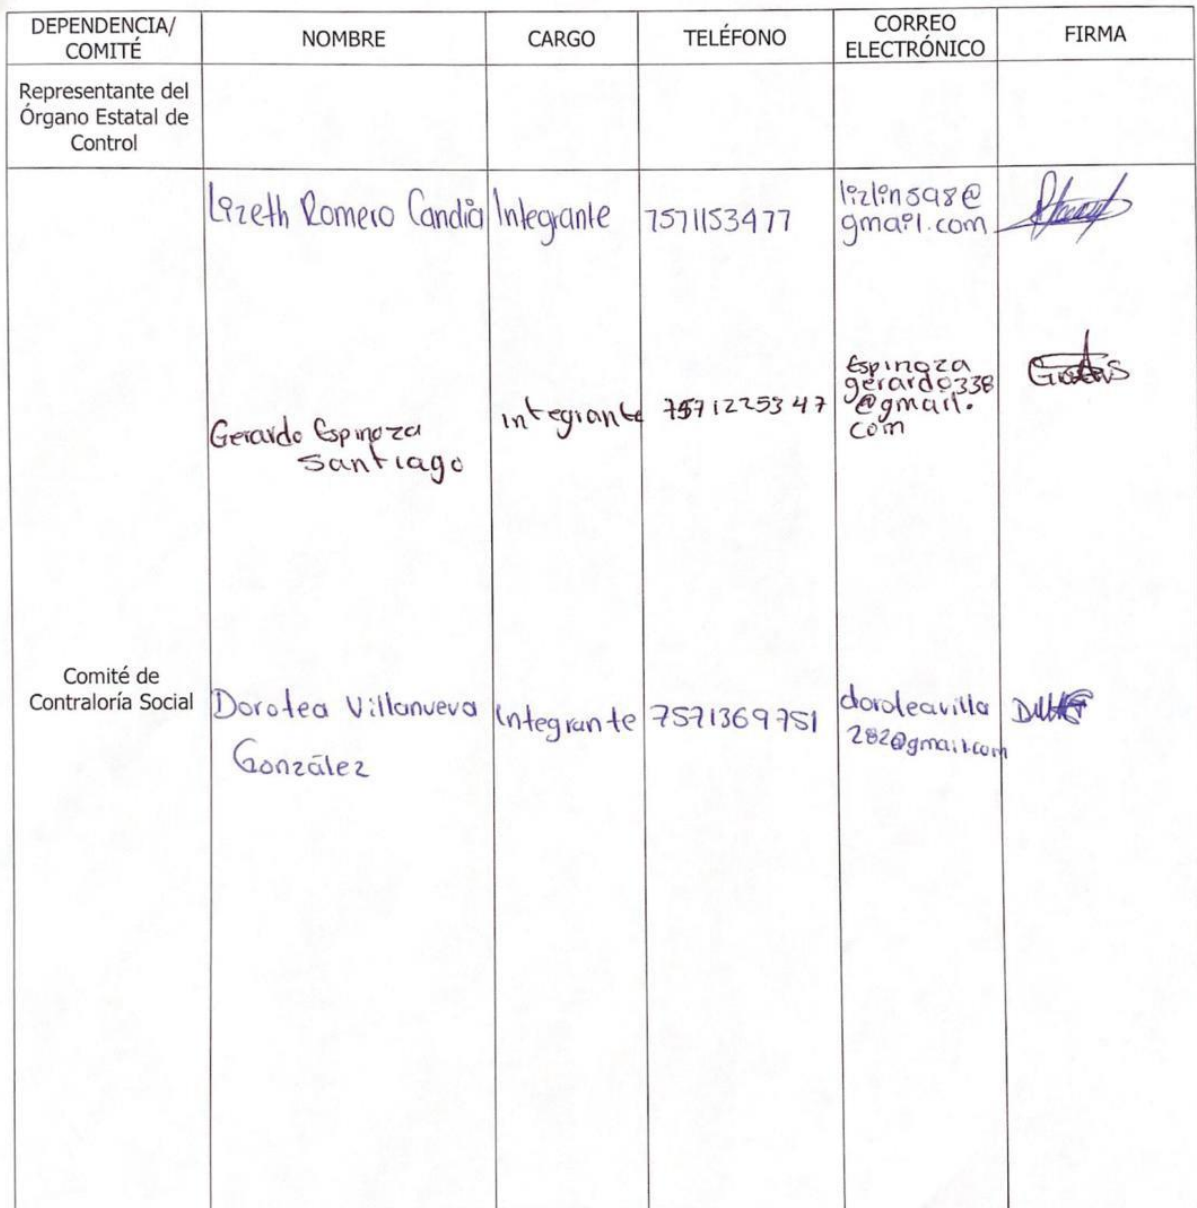 DEPENDENCIA/
COMITÉ
NOMBRE
CARGO
TELÉFONO
CORREO
ELECTRÓNICO
FIRMA
Representante del
Órgano Estatal de
Control
Lizeth Romero Candia
Integrante
7571153477
lizlins98@
gmail.com
Gerardo Espinoza
Santiago
integrante
7571225347
Espinoza
gerardo338
@gmail.
com
Comité de
Contraloría Social
Dorotea Villanueva
González
integrante
7571369751
doroteavilla
282@gmail.com